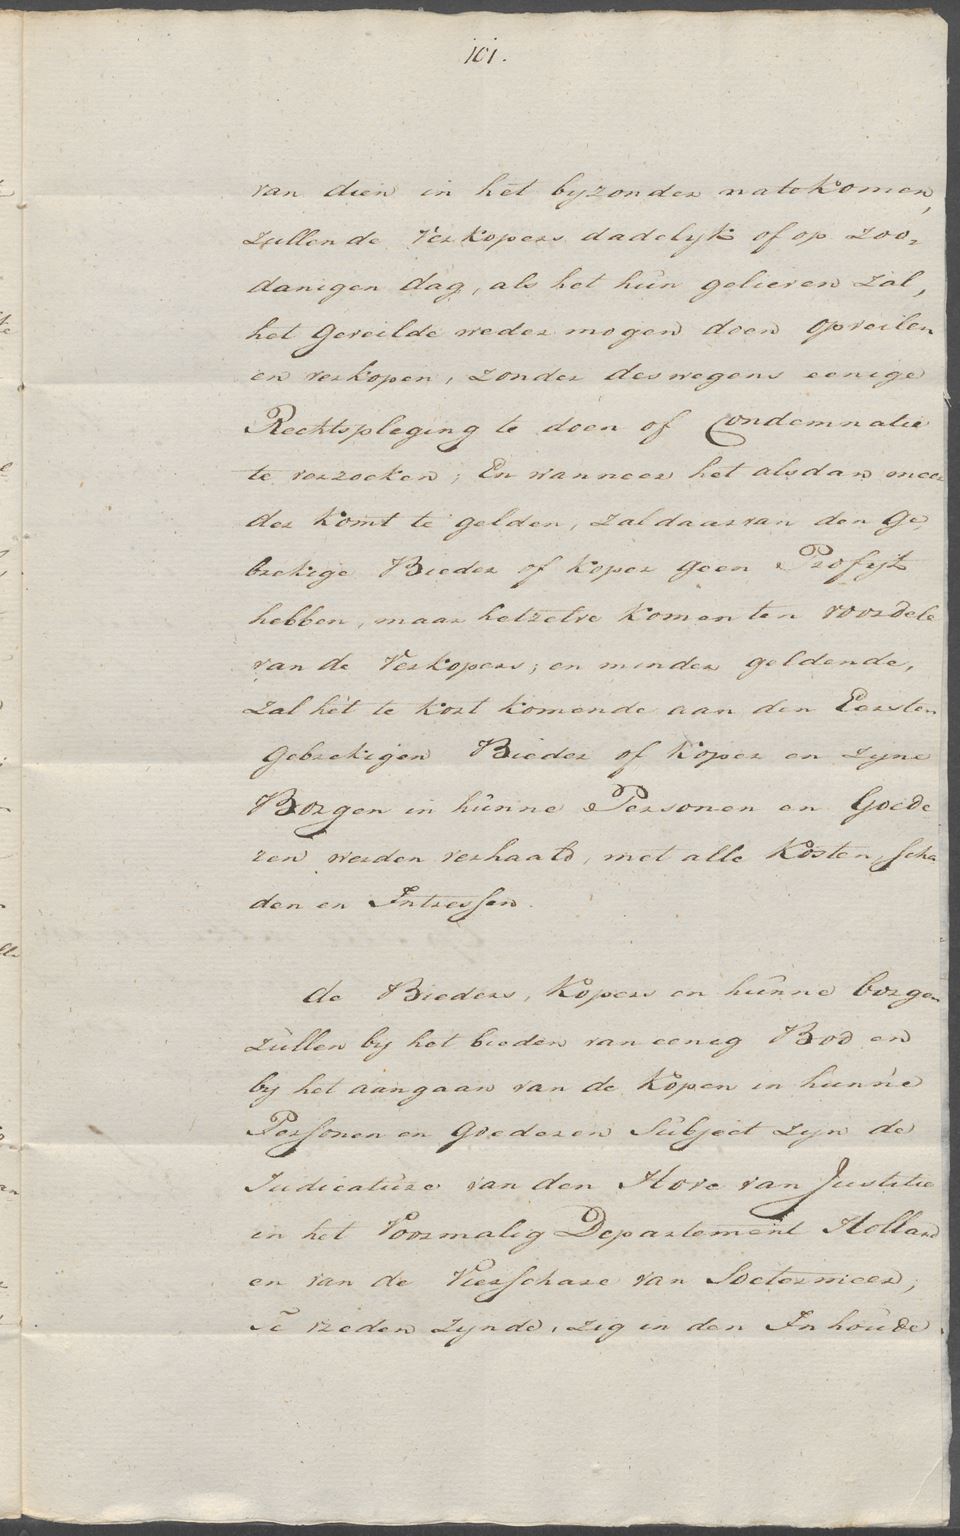 101.
van dien in het byzonder natekomen,
zullen de Verkopers dadelyk of op zoo„
danigen dag, als het hun gelieven zal,
het Geveilde weder mogen doen opveilen
en verkopen, zonder deswegens eenige
Rechtspleging te doen of Condemnatie
te verzoeken; En wanneer het alsdan meer
der komt te gelden, zal daarvan den Ge
brekige Bieder of koper Geen Profyt
hebben, maar hetzelve komen ten voordele
van de Verkopers; en minder geldende,
zal het te kort komende aan den Eersten
Gebrekigen Bieder of Koper en zyne
Borgen in hunne Personen en Goede
ren werden verhaald, met alle Kosten, scha
den en Intressen.
de Bieders, Kopers en hunne borgen
zullen by het bieden van eenig Bod en
by het aangaan van de Kopen in hunne
Personen en Goederen Subject zyn de
Judicature van den Hove van Justitie
in het Voormalig Departement Holland
en van de Vierschare van Soetermeer,
Te vreden zynde, zig in den Inhoude